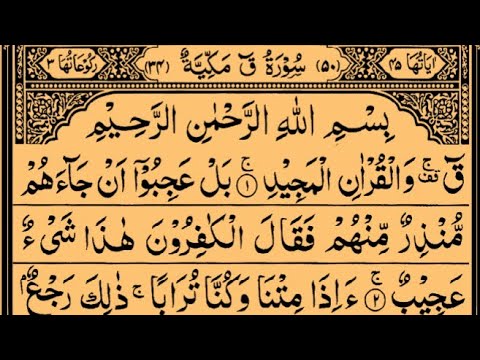 اٰیَاتُهَا ۴۵ (۵۰) سُوْرَةُ قٓ مَكِّیَّةٌ (۳۴) رُكُوْعَاتُهَا ۳
بِسْمِ اللهِ الرَّحْمٰنِ الرَّحِیْمِ
قٓ ۚ۫ وَالْقُرْاٰنِ الْمَجِیْدِ ۚ۱ بَلْ عَجِبُوْۤا اَنْ جَآءَهُمْ
مُّنْذِرٌ مِّنْهُمْ فَقَالَ الْكٰفِرُوْنَ هٰذَا شَیْءٌ
عَجِیْبٌ ۚ۲ ءَاِذَا مِتْنَا وَكُنَّا تُرَابًا ۚ ذٰلِكَ رَجْعٌۢ